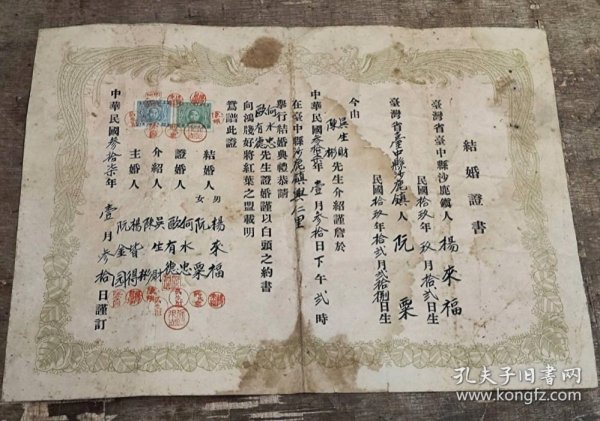 結婚證書
臺灣省臺中縣沙鹿鎮人 楊來福
民國拾玖年玖月拾貳日生
臺灣省臺中縣沙鹿鎮人 阮粟
民國拾玖年拾貳月貳拾捌日生
今由 吳生財 陳彬 先生介紹謹詹於
中華民國參拾柒年壹月參拾日下午貳時
在臺中縣沙鹿鎮興仁里
舉行結婚典禮恭請
何水忠 歐有德 先生證婚謹以白頭之約書
向鴻牋好將紅葉之盟載明
鴛譜此證
結婚人 男 楊來福
女 阮粟
證婚人 何水忠
歐有德
介紹人 吳生財
陳彬
主婚人 楊皆得
阮金園
中華民國參拾柒年壹月參拾日謹訂
孔夫子旧书网
www.kongfz.com